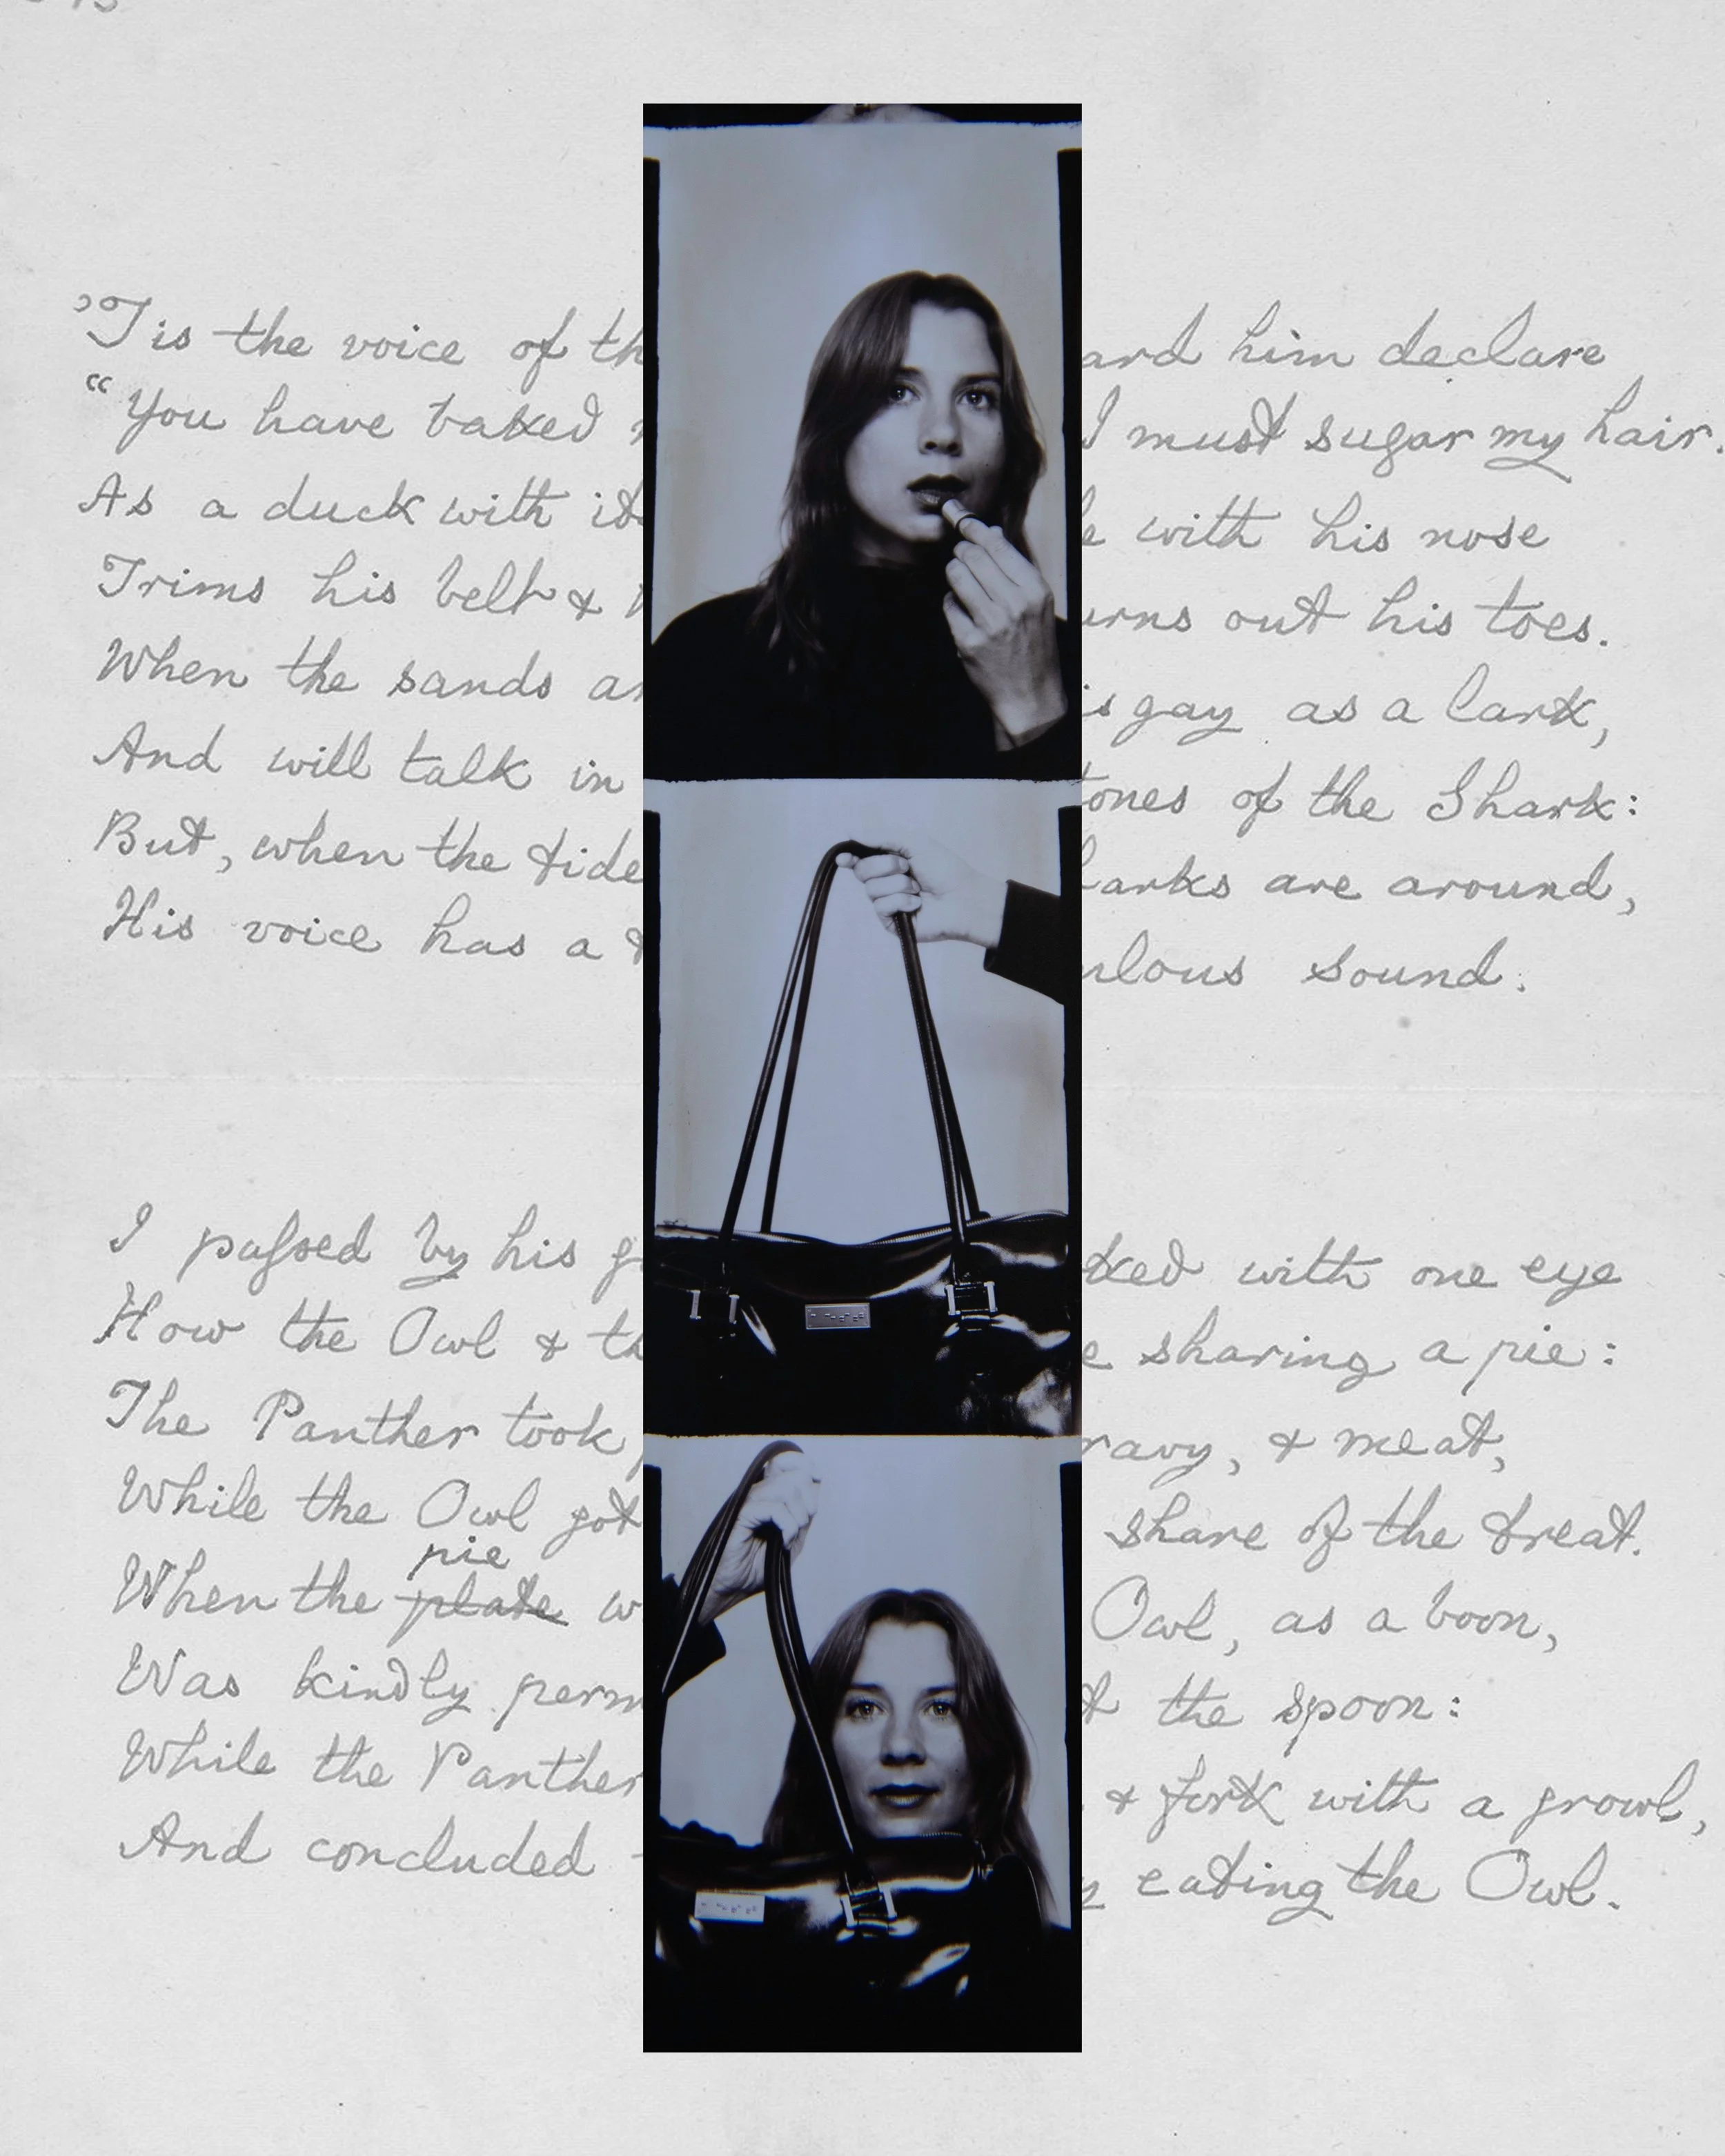 'Tis the voice of th ard him declare
"You have baked I must sugar my hair.
As a duck with it e with his nose
Trims his belt & urns out his toes.
When the sands ar is gay as a lark,
And will talk in tones of the Shark:
But, when the tide harks are around,
His voice has a ulous sound.
I passed by his g ked with one eye
How the Owl & th e sharing a pie:
The Panther took ravy, & meat,
While the Owl got share of the treat.
pie
When the plate w Owl, as a boon,
Was kindly perm t the spoon:
While the Panther & fork with a growl,
And concluded eating the Owl.